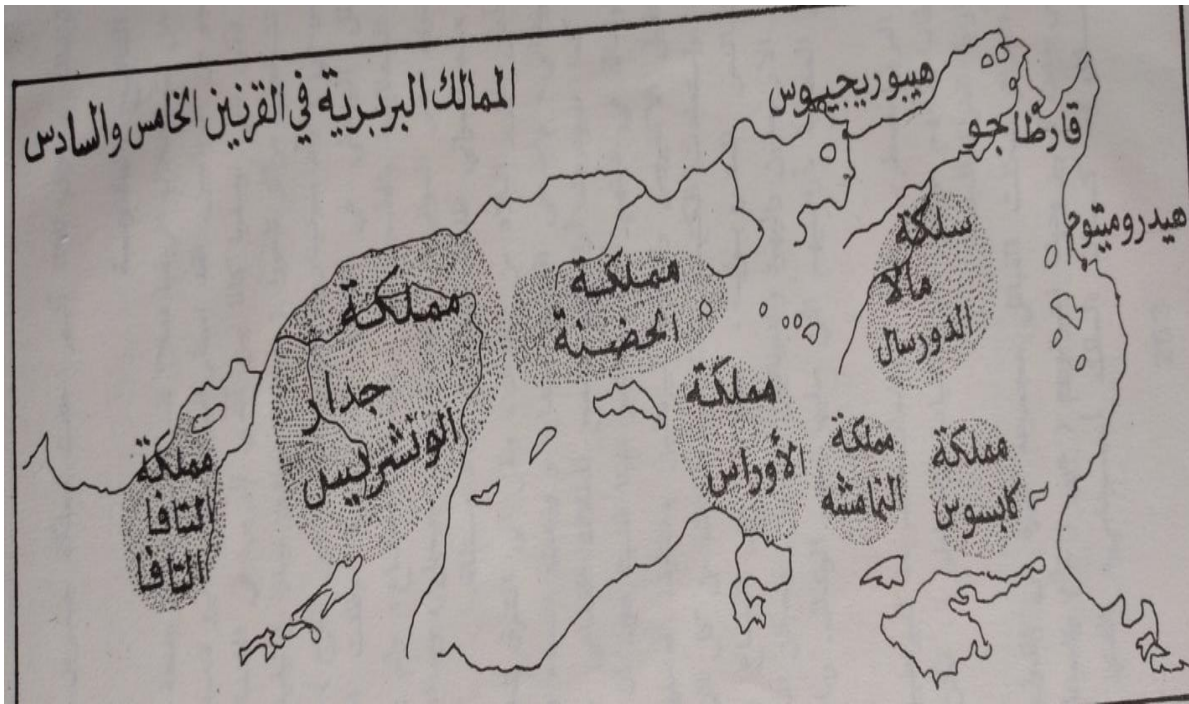 الممالك البربرية في القرنين الخامس والسادس
هيبوريجيوس
قارطاجو
هيدروميتوم
سلكة
مالا
الدورسال
مملكة
الحضنة
مملكة
جدار
الونشريس
مملكة
الأوراس
مملكة
النمامشه
مملكة
كابسوس
مملكة
التافا
التافا